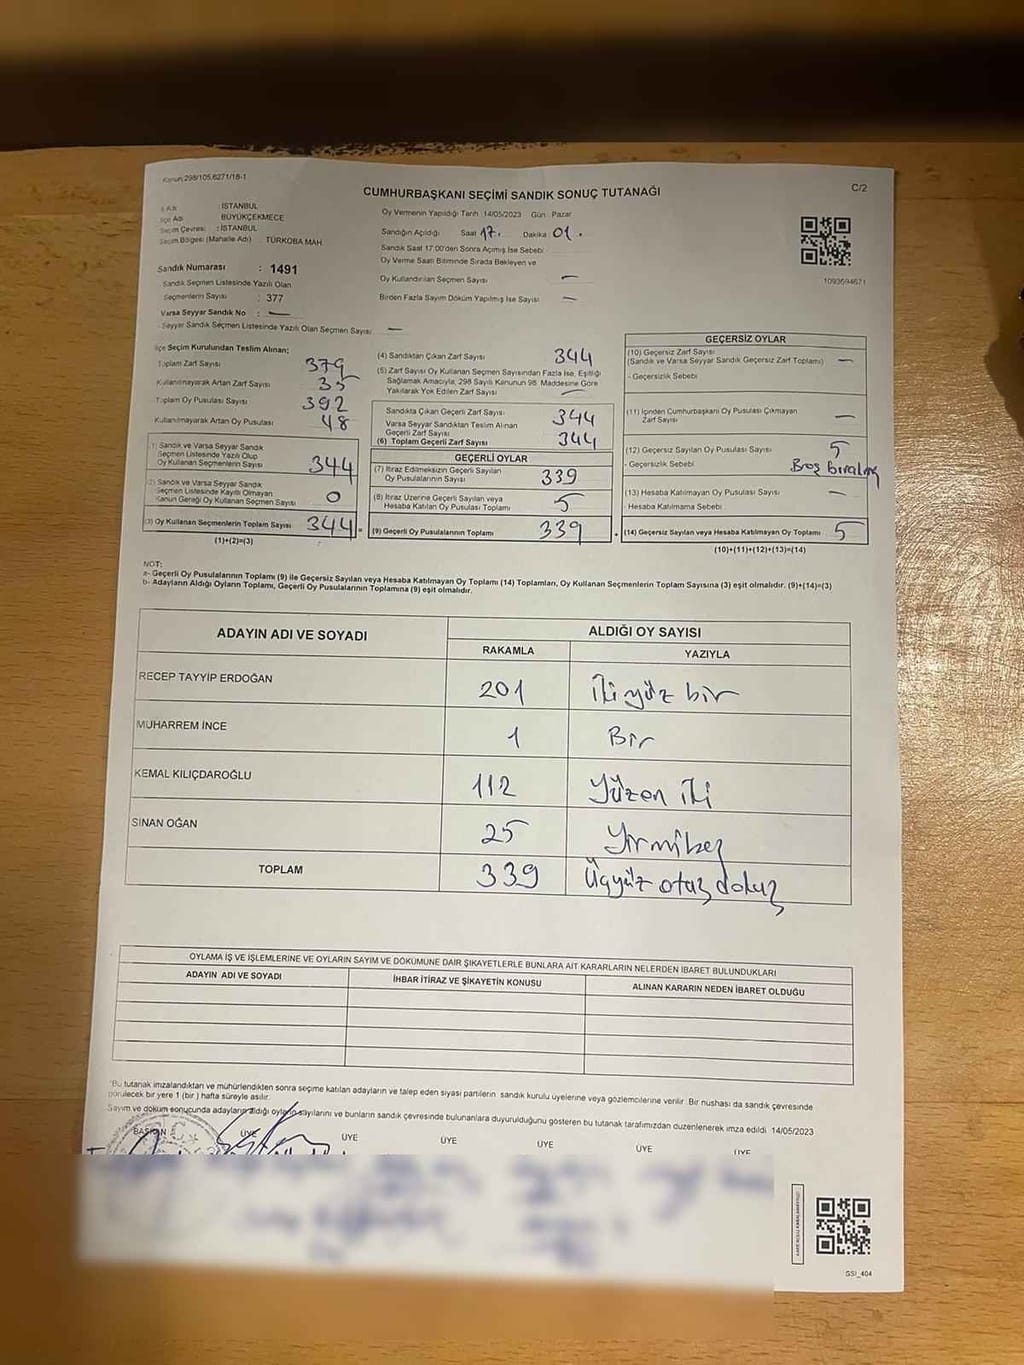 Kanun:298/105,6271/18-1
CUMHURBAŞKANI SEÇİMİ SANDIK SONUÇ TUTANAĞI
C/2
İl Adı : İSTANBUL
İlçe Adı : BÜYÜKÇEKMECE
Seçim Çevresi : İSTANBUL
Seçim Bölgesi (Mahalle Adı) TÜRKOBA MAH
Oy Vermenin Yapıldığı Tarih 14/05/2023 Gün : Pazar
Sandığın Açıldığı Saat 17. Dakika 01.
Sandık Saat 17:00'den Sonra Açılmış İse Sebebi
Oy Verme Saati Bitiminde Sırada Bekleyen ve
Oy Kullandırılan Seçmen Sayısı —
Birden Fazla Sayım Döküm Yapılmış İse Sayısı —
1093694671
Sandık Numarası : 1491
Sandık Seçmen Listesinde Yazılı Olan
Seçmenlerin Sayısı : 377
Varsa Seyyar Sandık No : —
Seyyar Sandık Seçmen Listesinde Yazılı Olan Seçmen Sayısı : —
İlçe Seçim Kurulundan Teslim Alınan;
Toplam Zarf Sayısı 379
Kullanılmayarak Artan Zarf Sayısı 35
Toplam Oy Pusulası Sayısı 392
Kullanılmayarak Artan Oy Pusulası 48
(1) Sandık ve Varsa Seyyar Sandık
Seçmen Listesinde Yazılı Olup
Oy Kullanan Seçmenlerin Sayısı 344
(2) Sandık ve Varsa Seyyar Sandık
Seçmen Listesinde Kayıtlı Olmayan
Kanun Gereği Oy Kullanan Seçmen Sayısı 0
(3) Oy Kullanan Seçmenlerin Toplam Sayısı 344
(1)+(2)=(3)
(4) Sandıktan Çıkan Zarf Sayısı 344
(5) Zarf Sayısı Oy Kullanan Seçmen Sayısından Fazla İse, Eşitliği
Sağlamak Amacıyla, 298 Sayılı Kanunun 98. Maddesine Göre
Yakılarak Yok Edilen Zarf Sayısı —
Sandıkta Çıkan Geçerli Zarf Sayısı 344
Varsa Seyyar Sandıktan Teslim Alınan
Geçerli Zarf Sayısı
(6) Toplam Geçerli Zarf Sayısı 344
GEÇERLİ OYLAR
(7) İtiraz Edilmeksizin Geçerli Sayılan
Oy Pusulalarının Sayısı 339
(8) İtiraz Üzerine Geçerli Sayılan veya
Hesaba Katılan Oy Pusulası Toplamı 5
(9) Geçerli Oy Pusulalarının Toplamı 339
GEÇERSİZ OYLAR
(10) Geçersiz Zarf Sayısı
(Sandık ve Varsa Seyyar Sandık Geçersiz Zarf Toplamı) —
- Geçersizlik Sebebi
(11) İçinden Cumhurbaşkanı Oy Pusulası Çıkmayan
Zarf Sayısı —
(12) Geçersiz Sayılan Oy Pusulası Sayısı 5
- Geçersizlik Sebebi Boş bıralmış
(13) Hesaba Katılmayan Oy Pusulası Sayısı —
- Hesaba Katılmama Sebebi
(14) Geçersiz Sayılan veya Hesaba Katılmayan Oy Toplamı 5
(10)+(11)+(12)+(13)=(14)
NOT:
a- Geçerli Oy Pusulalarının Toplamı (9) ile Geçersiz Sayılan veya Hesaba Katılmayan Oy Toplamı (14) Toplamları, Oy Kullanan Seçmenlerin Toplam Sayısına (3) eşit olmalıdır. (9)+(14)=(3)
b- Adayların Aldığı Oyların Toplamı, Geçerli Oy Pusulalarının Toplamına (9) eşit olmalıdır.
ADAYIN ADI VE SOYADI ALDIĞI OY SAYISI
RAKAMLA YAZIYLA
RECEP TAYYİP ERDOĞAN 201 İki yüz bir
MUHARREM İNCE 1 Bir
KEMAL KILIÇDAROĞLU 112 Yüzon iki
SİNAN OĞAN 25 Yirmibeş
TOPLAM 339 Üçyüz otuz dokuz
OYLAMA İŞ VE İŞLEMLERİNE VE OYLARIN SAYIM VE DÖKÜMÜNE DAİR ŞİKAYETLERLE BUNLARA AİT KARARLARIN NELERDEN İBARET BULUNDUKLARI
ADAYIN ADI VE SOYADI İHBAR İTİRAZ VE ŞİKAYETİN KONUSU ALINAN KARARIN NEDEN İBARET OLDUĞU
*Bu tutanak imzalandıktan ve mühürlendikten sonra seçime katılan adayların ve talep eden siyasi partilerin sandık kurulu üyelerine veya gözlemcilerine verilir. Bir nüshası da sandık çevresinde
görülecek bir yere 1 (bir) hafta süreyle asılır.
Sayım ve döküm sonucunda adayların aldığı oyların sayılarını ve bunların sandık çevresinde bulunanlara duyurulduğunu gösteren bu tutanak tarafımızdan düzenlenerek imza edildi. 14/05/2023
BAŞKAN ÜYE ÜYE ÜYE ÜYE ÜYE ÜYE
SSI_404